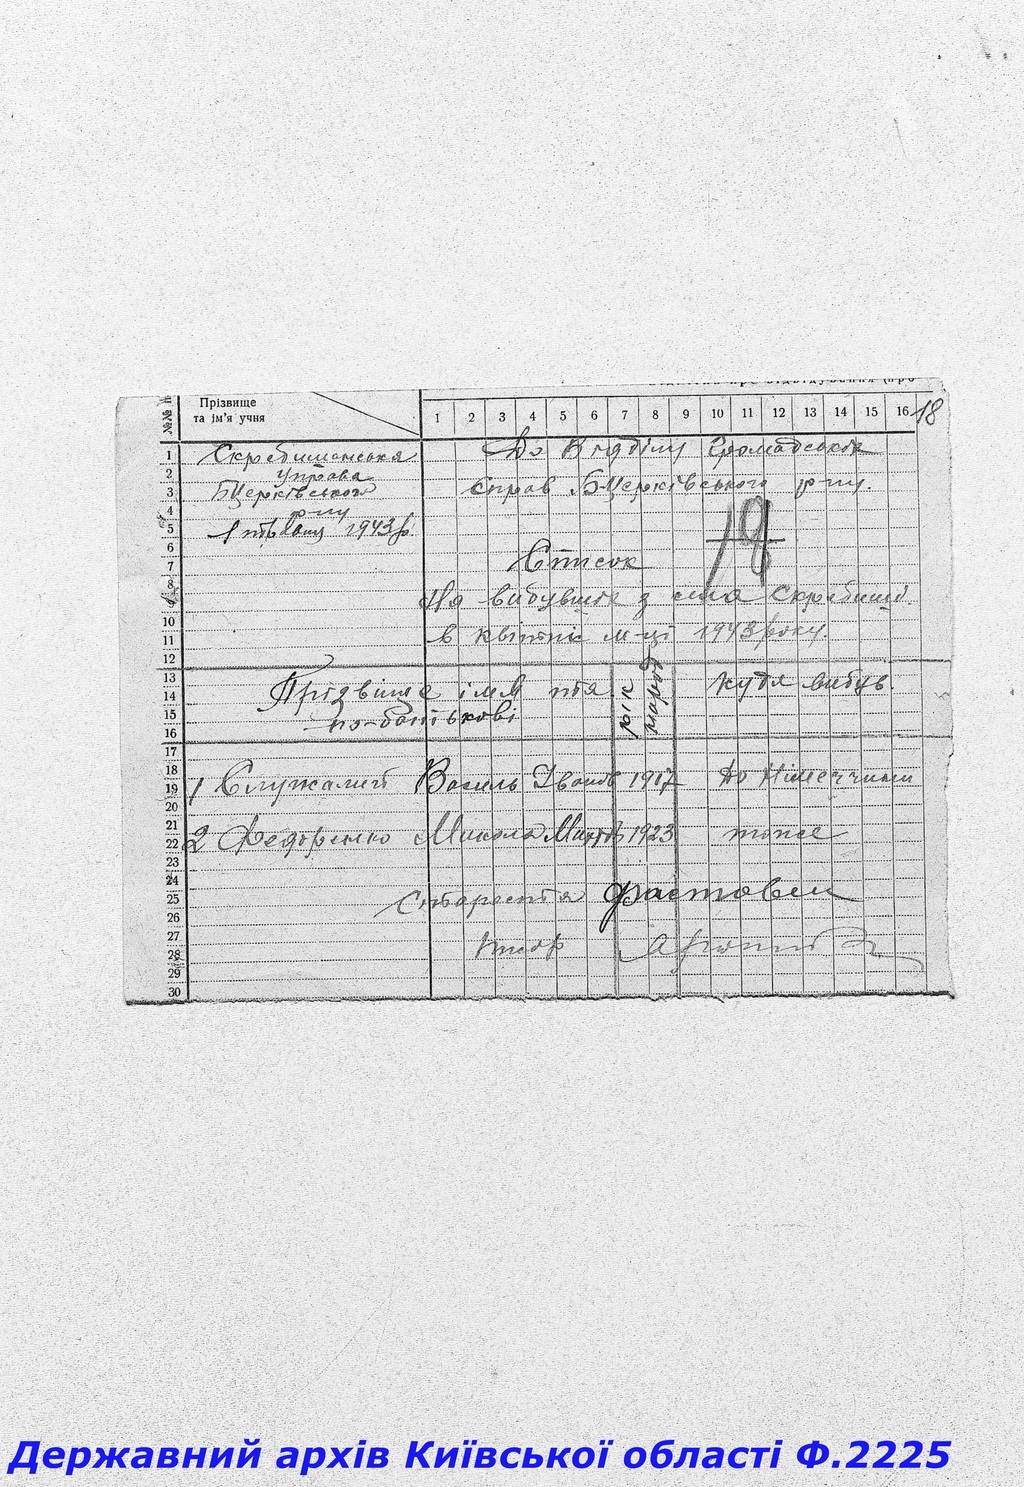 Прізвище
та ім'я учня
1 2 3 4 5 6 7 8 9 10 11 12 13 14 15 16
18
Скребишанська
управа
БЦерківського
р-ну
1 травня 1943 р.
До Відділу Громадських
справ БЦерківського р-ну.
Список
На вибувших з села Скребиші
в квітні м-ці 1943 року.
Прізвіще імя та
по-батькові
рік
народ
куда вибув.
1 Служалий Василь Іванов 1917 До Німеччини
2 Федоренко Микола 1923 тоже
Староста Фастовец
Писар
1
2
3
4
5
6
7
8
9
10
11
12
13
14
15
16
17
18
19
20
21
22
23
24
25
26
27
28
29
30
Державний архів Київської області Ф.2225